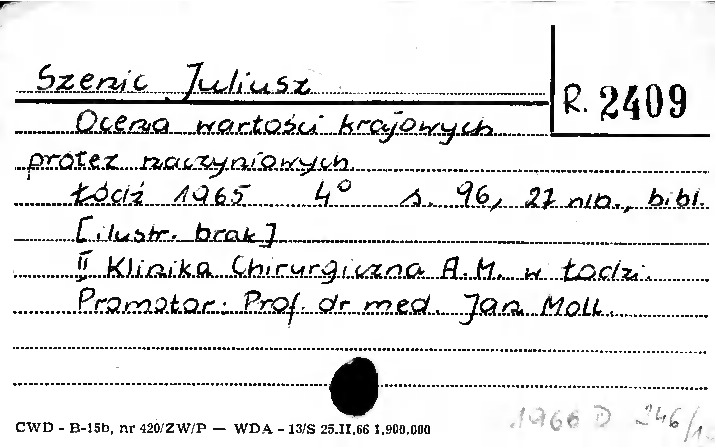 Szenic Juliusz
R. 2409
Ocena wartości krajowych
protez naczyniowych.
Łódź 1965 4° s. 96, 27 nlb., bibl.
[ilustr. brak]
II Klinika Chirurgiczna A.M. w Łodzi.
Promotor: Prof. dr med. Jan Moll.
CWD - B-15b, nr 420/ZW/P — WDA - 13/S 25.II.66 1,900,000
1966 D 246/